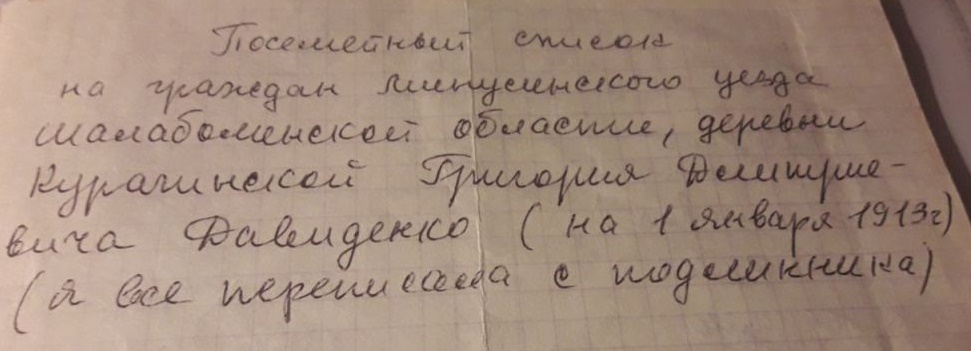 Посемейный список
на граждан минусинского уезда
шалаболинской области, деревни
Курагинской Григория Дмитрие-
вича Давиденко (на 1 января 1913г)
(я все переписала с подлинника)